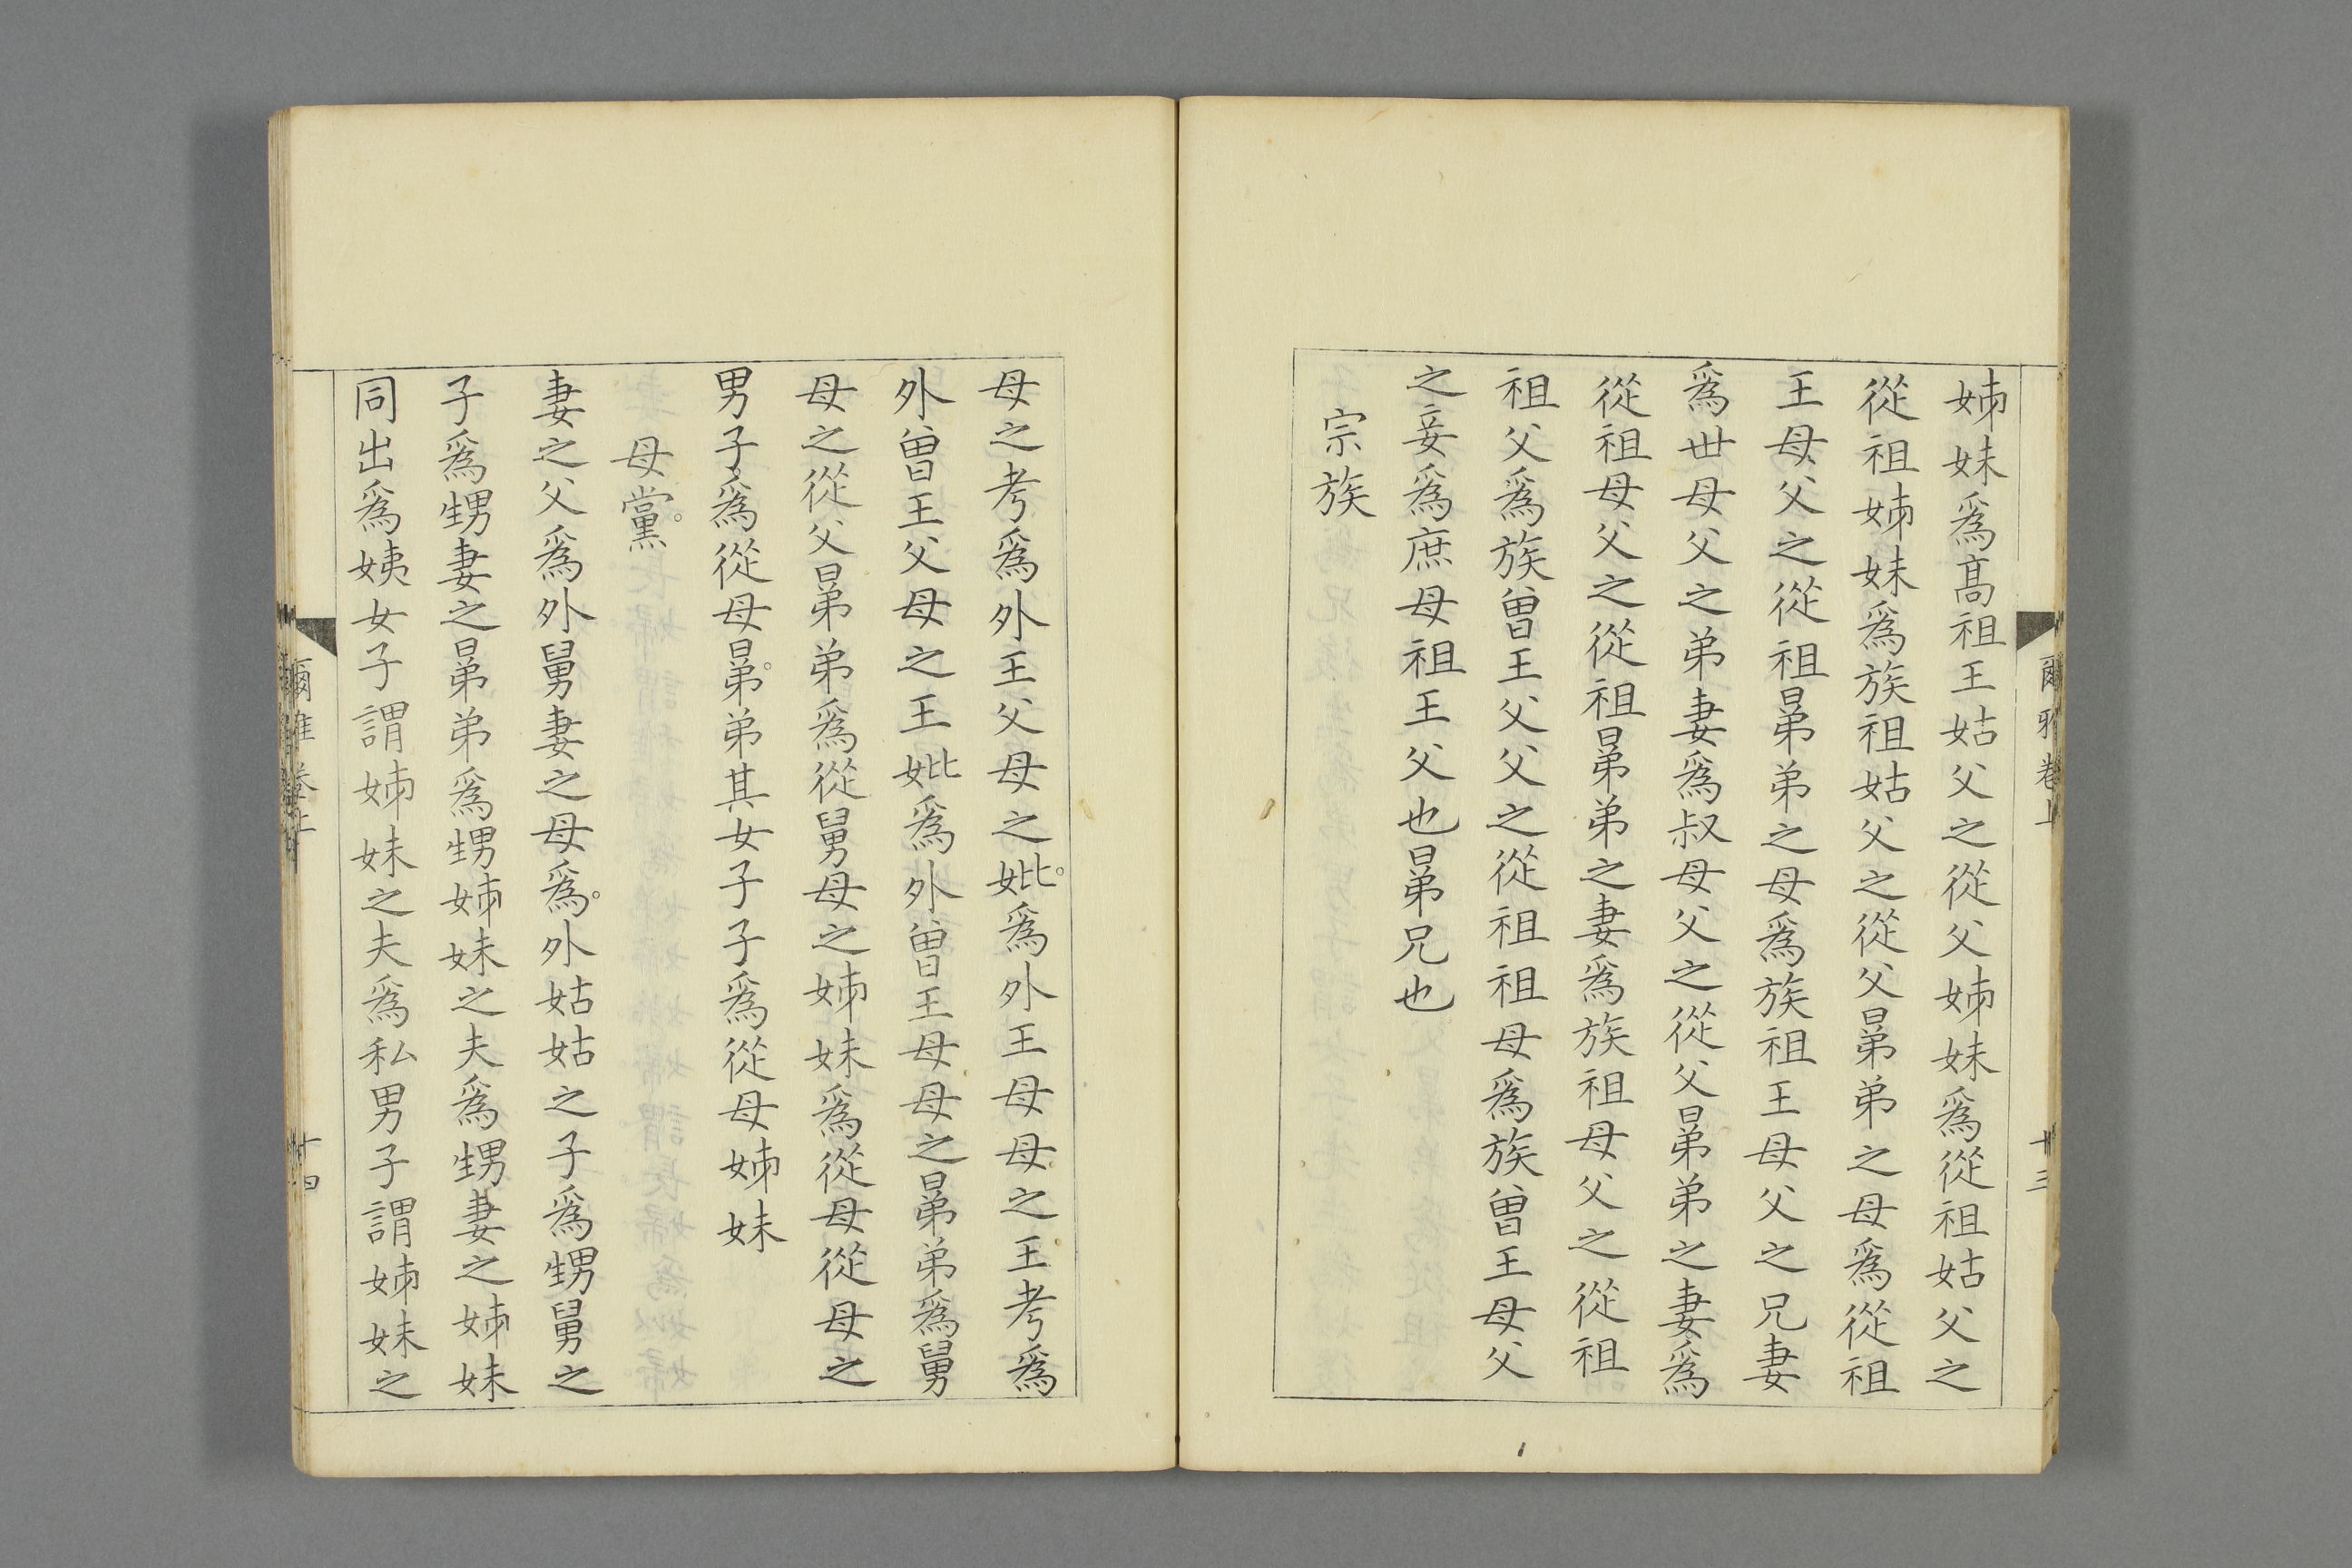 爾雅卷上
十三
姊妹爲髙祖王姑父之從父姊妹爲從祖姑父之
從祖姊妹爲族祖姑父之從父晜弟之母爲從祖
王母父之從祖晜弟之母爲族祖王母父之兄妻
爲世母父之弟妻爲叔母父之從父晜弟之妻爲
從祖母父之從祖晜弟之妻爲族祖母父之從祖
祖父爲族曾王父父之從祖祖母爲族曾王母父
之妾爲庶母祖王父也晜兄也
宗族
母之考爲外王父母之妣爲外王母母之王考爲
外曾王父母之王妣爲外曾王母母之晜弟爲舅
母之從父晜弟爲從舅母之姊妹爲從母從母之
男子爲從母晜弟其女子子爲從母姊妹
母黨
妻之父爲外舅妻之母爲外姑姑之子爲甥舅之
子爲甥妻之晜弟爲甥姊妹之夫爲甥妻之姊妹
同出爲姨女子謂姊妹之夫爲私男子謂姊妹之
爾雅卷上
十四